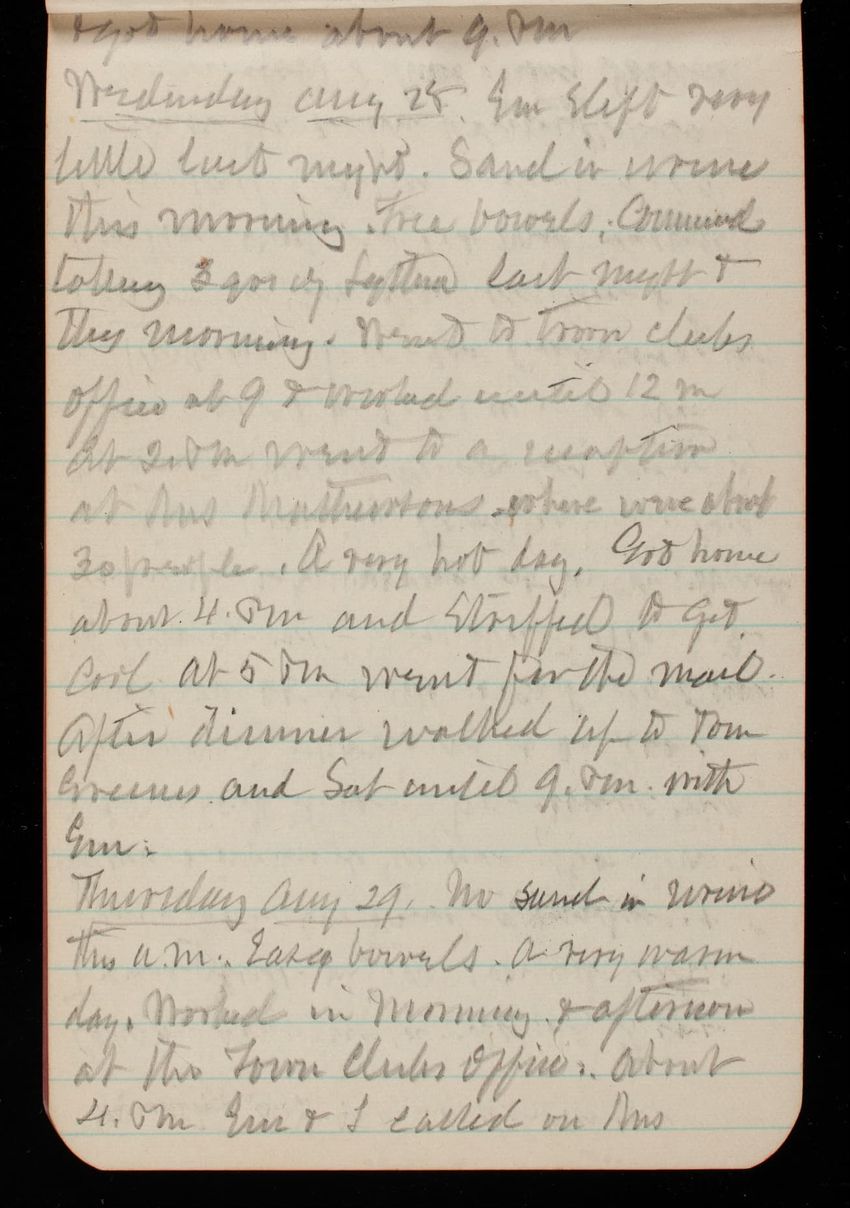 & got home about 9. Pm
Wednesday Aug 28. Em Slept very
little last night. Sand in urine
this morning. Free bowels. Commenced
taking 3 grs of last night &
this morning. Went to Town clerks
office at 9 & worked until 12 m
At 2. Pm went to a reception
at Mrs where were about
30 people. A very hot day. Got home
about 4. Pm and Stripped to get
Cool At 5 Pm went for the mail.
After dinner walked up to Tom
Greenes and Sat until 9. Pm. with
Em.
Thursday Aug 29. No sand in urine
this a.m. Easy bowels. A very warm
day. Worked in Morning & afternoon
at the Town Clerks Office. About
4. Pm Em & I called on Mrs